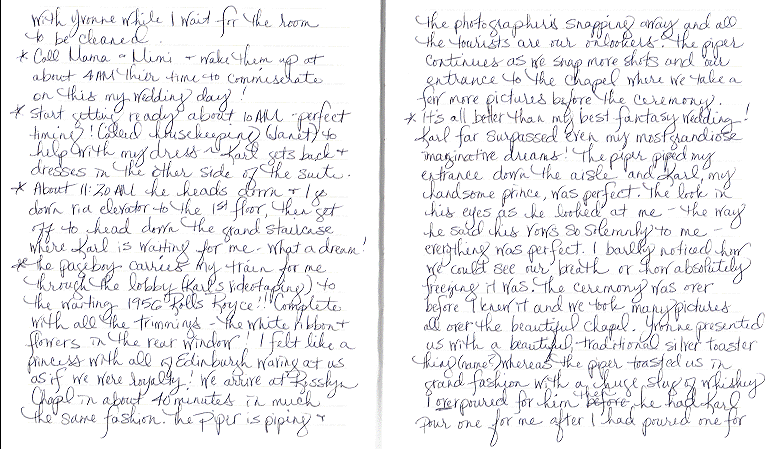 with Yvonne while I wait for the room
to be cleaned.
* Call Mama & Mimi & wake them up at
about 4 AM their time to commiserate
on this my wedding day!
* Start getting ready about 10 AM - perfect
timing! Called housekeeping (Janet) to
help with my dress ~ Karl gets back &
dresses in the other side of the suite.
* About 11:20 AM he heads down & I go
down via elevator to the 1st floor, then get
off to head down the grand staircase
where Karl is waiting for me. What a dream!
* The pageboy carries my train for me
through the lobby (Karl's videotaping) to
the waiting 1956 Rolls Royce!! Complete
with all the trimmings - the white ribbon &
flowers in the rear window! I felt like a
princess with all of Edinburgh waving at us
as if we were royalty! We arrive at Rosslyn
Chapel in about 40 minutes in much
the same fashion. The piper is piping &
the photographer is snapping away and all
the tourists are our onlookers. The piper
continues as we snap more shots and our
entrance to the chapel where we take a
few more pictures before the ceremony.
* It's all better than my best fantasy wedding!
Karl far surpassed even my most grandiose
imaginative dreams! The piper piped my
entrance down the aisle and Karl, my
handsome prince, was perfect. The look in
his eyes as he looked at me - the way
he said his vows so solemnly to me -
everything was perfect. I barely noticed how
we could see our breath or how absolutely
freezing it was. The ceremony was over
before I knew it and we took many pictures
all over the beautiful chapel. Yvonne presented
us with a beautiful, traditional silver toaster
thing (name?) whereas the piper toasted us in
grand fashion with a huge slug of whiskey
I overpoured for him then he had Karl
pour one for me after I had poured one for